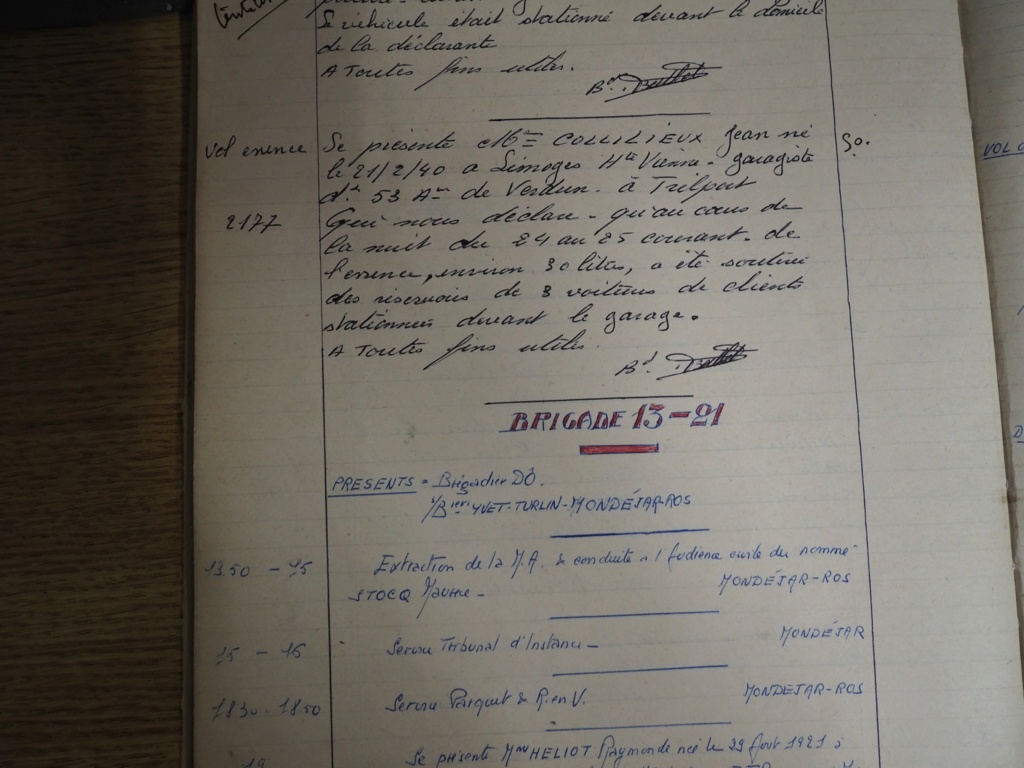 Le véhicule était stationné devant le domicile
de la déclarante
A Toutes fins utiles.
Bd
Vol essence Se présente COLLILIEUX Jean né So.
le 21/2/40 a Limoges Hte Vienne - garagiste
dt 53 Aue de Verdun - à Trilport
2177 Qui nous déclare - qu'au cours de
la nuit du 24 au 25 courant - de
l'essence, environ 30 litres, a été soutirée
des réservoirs de 3 voitures de clients
stationnées devant le garage.
A Toutes fins utiles.
Bd
BRIGADE 13-21
PRESENTS = Brigadier DÔ.
YVET-TURLIN-MONDÉJAR-ROS
13.50 - 15 Extraction de la M.A. & conduite a l'Audience civile du nommé
STOCQ Maurice - MONDÉJAR-ROS
15 - 16 Service Tribunal d'Instance - MONDÉJAR
1830 - 1850 Service Parquet & R.en V. MONDEJAR-ROS
19 Se présente Mme HELIOT Raymonde née le 29 Aout 1921 à
VOL